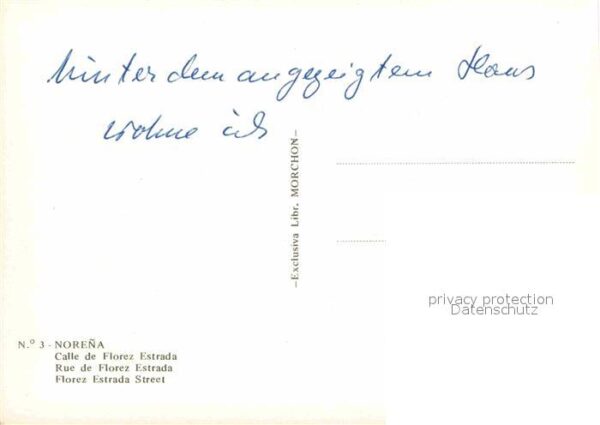 hinter dem angezeigtem Haus
wohne ich
—Exclusiva Libr. MORCHON—
privacy protection
Datenschutz
N.º 3 - NOREÑA
Calle de Florez Estrada
Rue de Florez Estrada
Florez Estrada Street